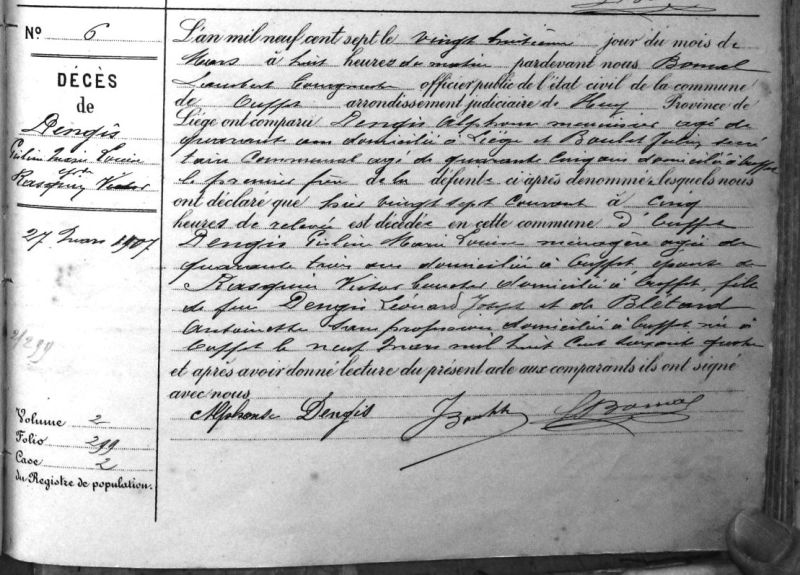 N° 6
DÉCÈS
de
Dengis
Marie Louise
Rasquin Victor
27 Mars 1907
2/299
Volume 2
Folio 299
Case 2
du Registre de population.
L'an mil neuf cent sept le vingt huitième jour du mois de
Mars à huit heures de matin pardevant nous Bomal
Lambert officier public de l'état civil de la commune
de Ouffet arrondissement judiciaire de Huy Province de
Liége ont comparu Dengis Alphonse meunier agé de
quarante ans domicilié à Liége et Boulet Jules secré
taire Communal agé de quarante cinq ans domicilié à Ouffet
le premier frère de la défunte ci après dénommé lesquels nous
ont déclaré que hier vingt sept courant à cinq
heures de relevée est décédée en cette commune d'Ouffet
Dengis Marie Louise ménagère agée de
quarante trois ans domiciliée à Ouffet épouse de
Rasquin Victor domicilié à Ouffet, fille
de feu Dengis Léonard Joseph et de Blétard
Antoinette sans profession domiciliée à Ouffet née à
Ouffet le neuf Mars mil huit cent soixante quatre
et après avoir donné lecture du présent acte aux comparants ils ont signé
avec nous
Alphonse Dengis J Boulet Bomal